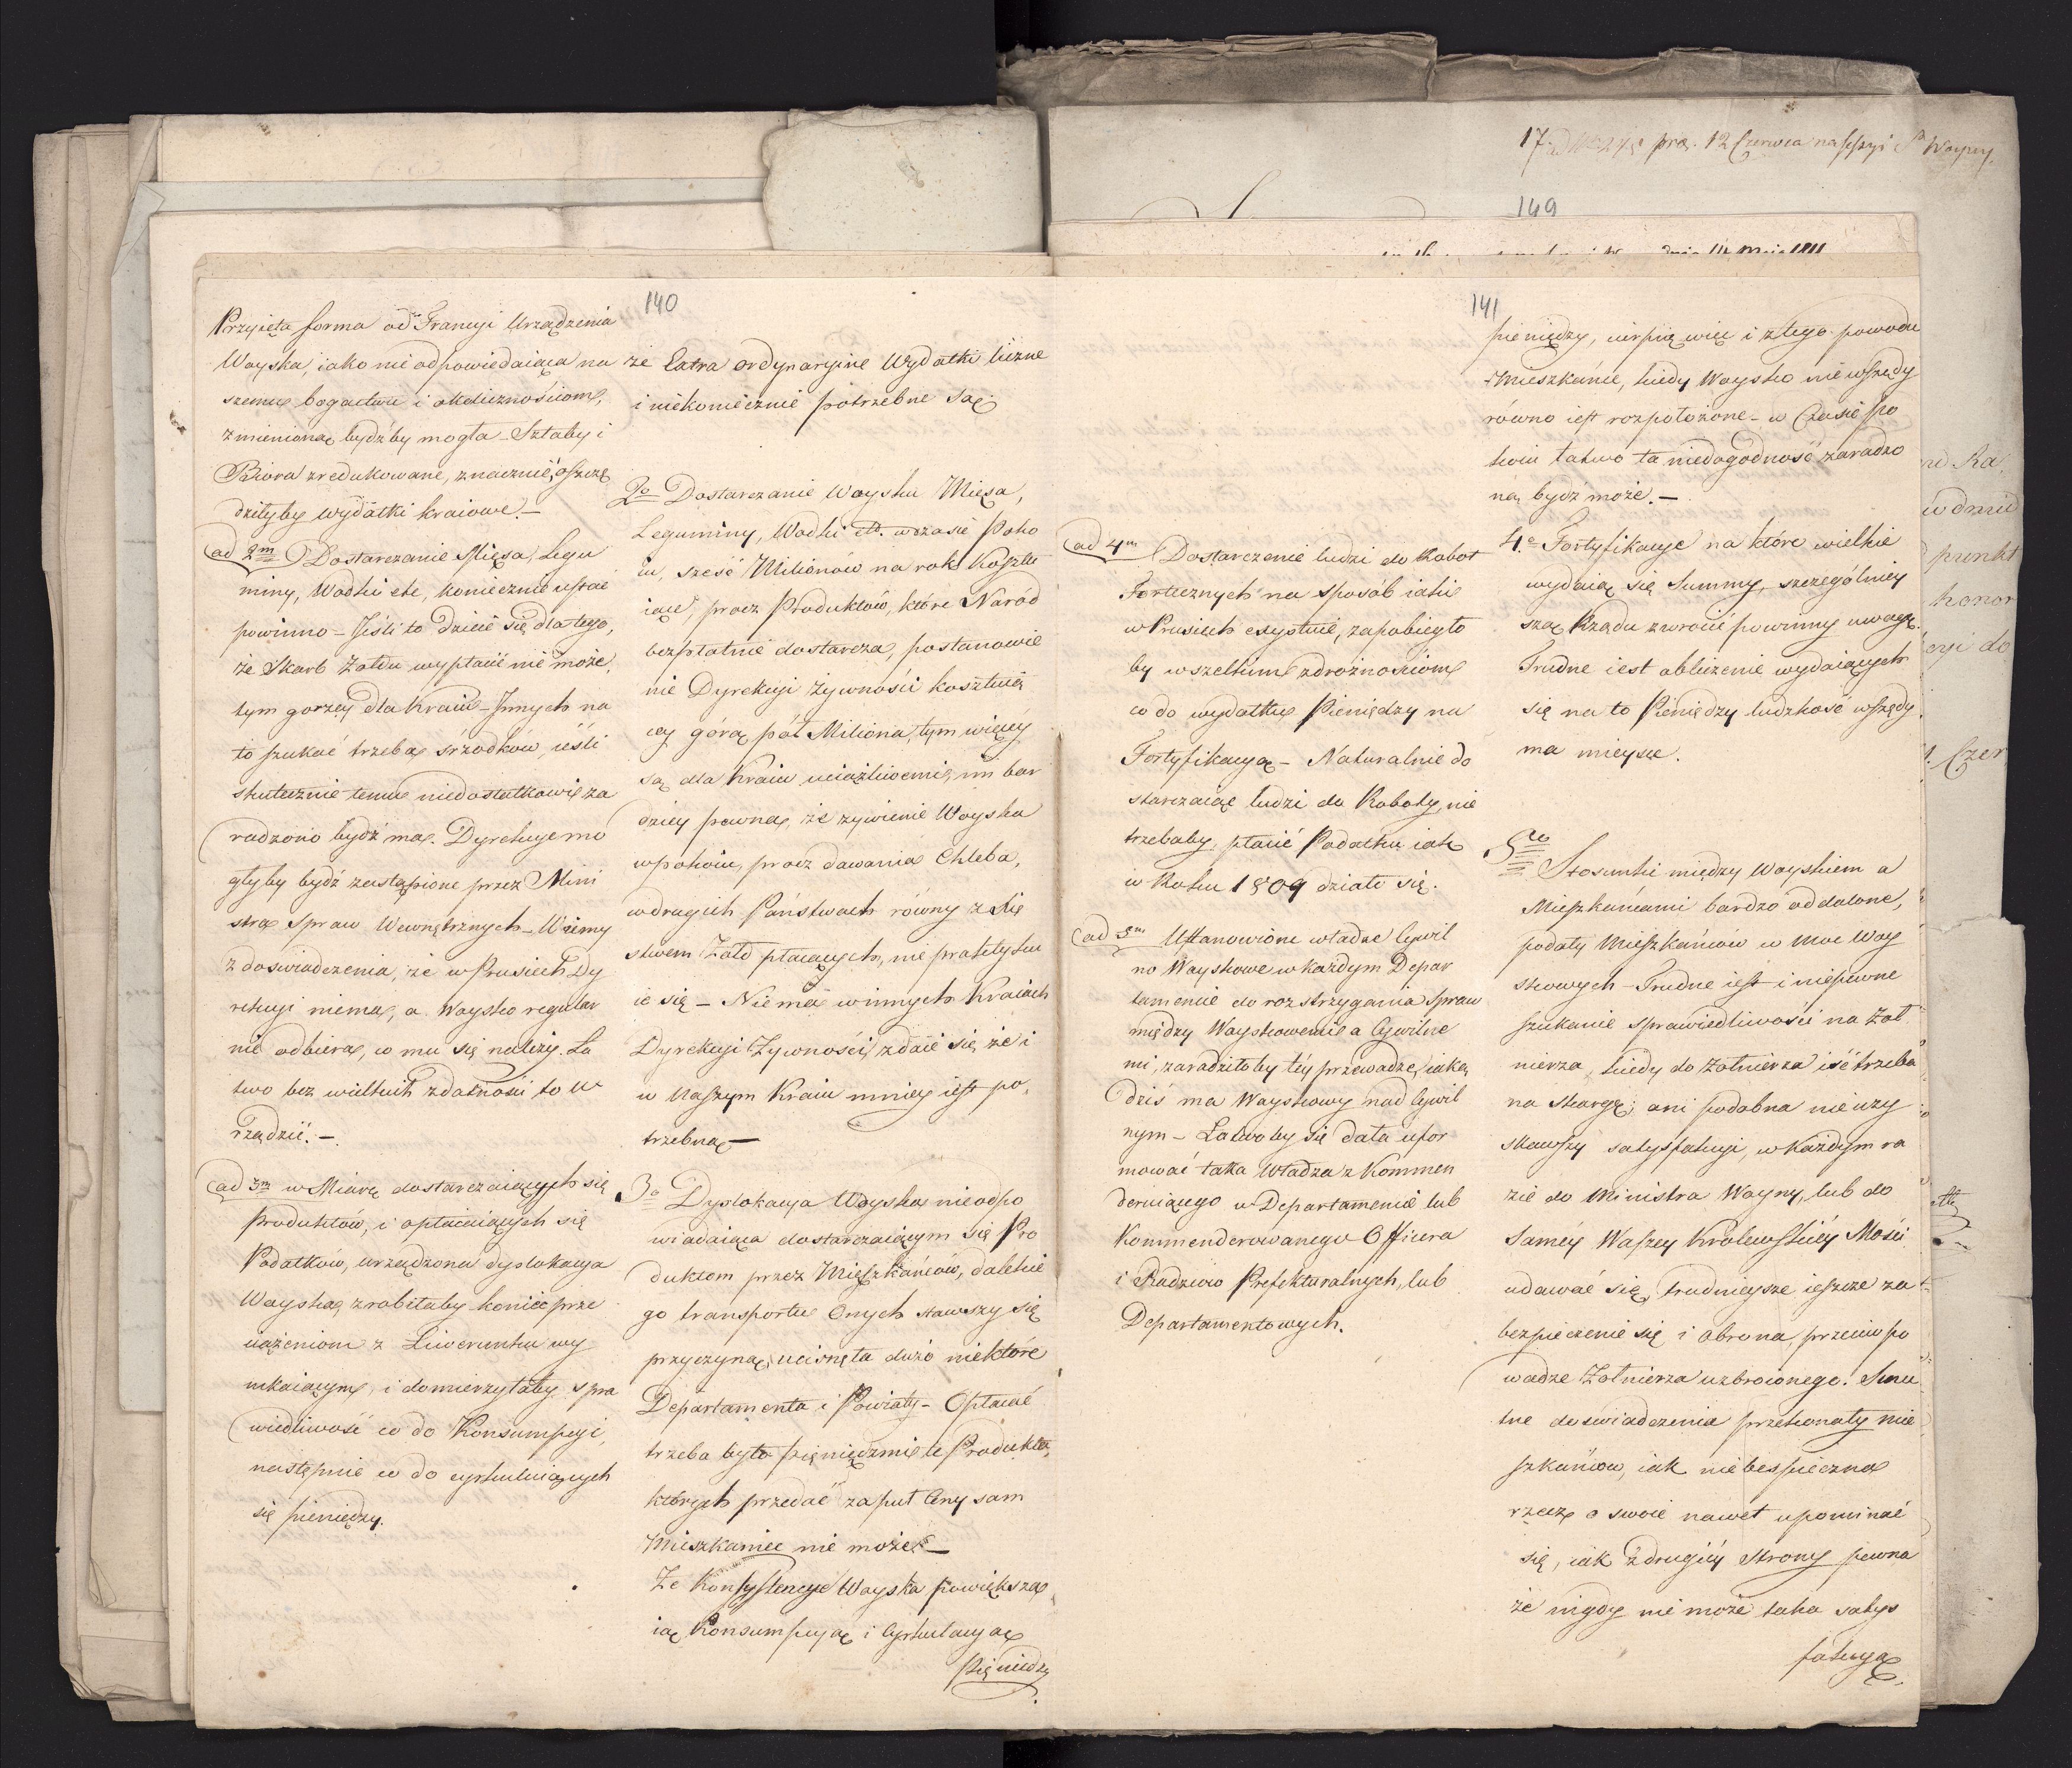 140
Przyięta forma od Francyi Urządzenia
Woyska, iako nie odpowiedaiąca na
szemu bogactwu i okolicznościom,
zmienioną bydź by mogła - Sztaby i
Biora zredukowane, znacznie oszczę
dziłyby wydatki kraiowe. -
ad 2m Dostarczanie Mięsa, Legu
miny, Wodki etc, koniecznie ustać
powinno - Jeśli to dzieie się dla tego,
że Skarb Żołdu wypłacić nie może,
tym gorzey dla Kraiu - Innych na
to szukać trzeba śrzodków, ieśli
skutecznie temu niedostatkowi za
radzono bydź ma. Dyrekcye mo
głyby bydź zastąpione przez Mini
stra Spraw Wewnętrznych - Wiemy
z doswiadczenia, że w Prusiech Dy
rekcyi niema, a Woysko regular
nie odbiera, co mu się należy. Ła
two bez wielkich zdatności to u
rządzić. -
ad 3m w Miarę dostarczaiących się
Produktów, i opłacaiących się
Podatków, urządzona dyslokacya
Woyska, zrobiłaby koniec prze
ciążeniom z Liwerunku wy
nikaiącym, i domierzyłaby spra
wiedliwość co do Konsumpcyi,
następnie co do cyrkuluiących
się pieniędzy.
że Extra ordynaryine Wydatki liczne
i niekoniecznie potrzebne są.
2o Dostarczanie Woysku Mięsa,
Leguminy, Wodki etc. w czasie Poko
iu, sześć Milionów na rok Kosztu
iące, przez Produktów, które Naród
bezpłatnie dostarcza, postanowie
nie Dyrekcyi Żywności kosztuią
cey górą pół Miliona, tym więcey
są dla Kraiu uciążliwemi, im bar
dziey pewna, że żywienie Woyska
w pokoiu, prócz dawania Chleba,
w drugich Państwach równy z Xię
stwem Żołd płacących, nie praktyku
ie się - Niema w innych Kraiach
Dyrekcyi Żywności, zdaie się że i
w Naszym Kraiu mniey iest po,
trzebną -
3o Dyslokacya Woyska nieodpo
wiadaiąca dostarczaiącym się Pro
duktom przez Mieszkańców, dalekie
go transportu Onych stawszy się
przyczyną, ucisnęła dużo niektóre
Departamenta i Powiaty - Opłacać
trzeba było pieniędzmi te Produkta,
których przedać za puł Ceny sam
Mieszkaniec nie może -
Że Konsystencye Woyska powiększa,
ią Konsumpcyą i Cyrkulacyą
Pieniędzy
17. pra. 12 Czerwca na Sessyi
149
dnia 14 Maia 1811
141
ad 4m Dostarczenie ludzi do Robot
Fortecznych na sposób iaki
w Prusiech exystuie, zapobiegło
by wszelkim zdrożnościom
co do wydatku Pieniędzy na
Fortyfikacyą - Naturalnie do
starczaiąc ludzi do Roboty, nie
trzebaby płacić Podatku iak
w Roku 1809 działo się.
ad 5m Ustanowione władze Cywil
no Woyskowe w każdym Depar
tamencie do rozstrzygania Spraw
między Woyskowemi a Cywilne
mi, zaradziłoby téy przewadze, iaką
dziś ma Woyskowy nad Cywil
nym - Łatwo by się dała ufor
mować taka Władza z Kommen
deruiącego w Departamencie lub
Kommenderowanego Officera
i Radzców Prefekturalnych, lub
Departamentowych.
pieniędzy, cierpią więc i z tego powodu
Mieszkańce, kiedy Woysko nie wszędy
równo iest rozpołożone - w Czasie po
koiu łatwo ta niedogodność zaradzo
ną bydź może. -
4o Fortyfikacye na które wielkie
wydaią się Summy, szczególniey
szą Rządu zwrócić powinny uwagę.
Trudne iest obliczenie wydaiących
się na to Pieniędzy ludzkość wszędy
ma mieysce.
5to Stosunki między Woyskiem a
Mieszkańcami bardzo oddalone,
podały Mieszkańców w moc Woy
skowych - Trudne iest i niepewne
szukanie sprawiedliwości na Żoł
nierza, kiedy do Żołnierza iść trzeba
na skargę; ani podobna nie uzy
skawszy satysfakcyi, w każdym ra
zie do Ministra Woyny, lub do
Saméy Waszey Królewskiéy Mości
udawać się, Trudnieysze ieszcze za
bezpieczenie się i Obrona, przeciw po
wadze Żołnierza uzbroionego. Smu
tne doswiadczenia przekonały mie
szkańców, iak niebespieczna
rzecz o swoie nawet upominać
się, iak z drugiéy strony pewna
że nigdy nie może taka satys
fakcya
punkt
honor